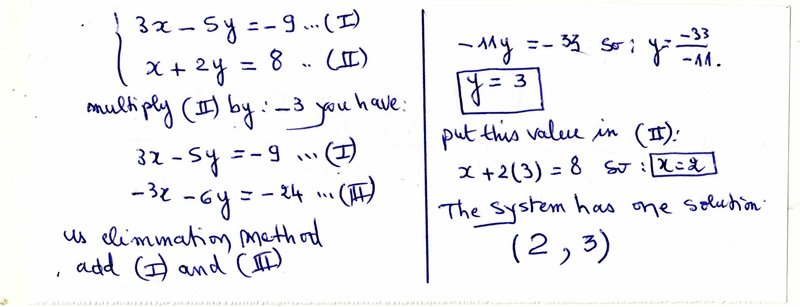 3x - 5y = -9 ... (I)
x + 2y = 8 .. (II)
multiply (II) by : -3 you have:
3x - 5y = -9 ... (I)
-3x - 6y = -24 ... (III)
us elimmation method
, add (I) and (III)
-11y = -33 so : y = -33/-11.
y = 3
put this value in (II):
x + 2(3) = 8 so : x = 2
The system has one solution.
(2, 3)